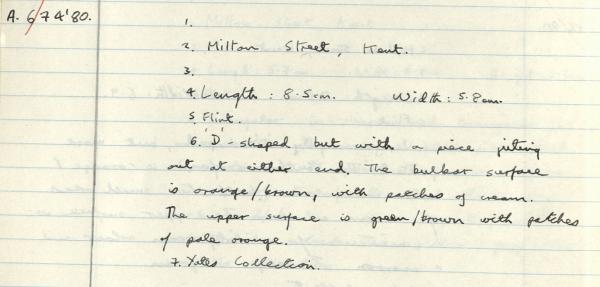 A. 674'80.
1.
2. Milton Street, Kent.
3.
4. Length : 8.5cm. Width : 5.8cm.
5. Flint.
6. 'D'-shaped, but with a piece jutting
out at either end. The bulbar surface
is orange/brown, with patches of cream.
The upper surface is green/brown with patches
of pale orange.
7. Yates Collection.